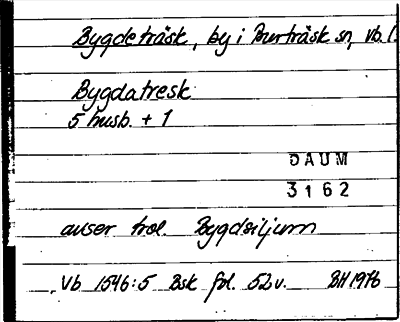 Bygdeträsk, by i Burträsk sn, Vb. l.
Bygdatresk
5 husb. + 1
DAUM
3162
auser trol. Bygdsiljum
Vb 1546:5 Bsk fol. 52v. BH 1976